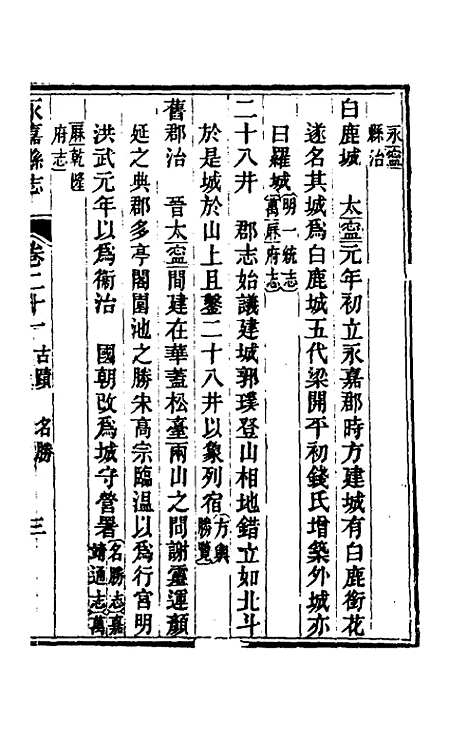 永寧
縣治
白鹿城　太寧元年初立永嘉郡時方建城有白鹿銜花
遂名其城爲白鹿城五代梁開平初錢氏增築外城亦
曰羅城明一統志
萬厤府志
二十八井　郡志始議建城郭璞登山相地錯立如北斗
於是城於山上且鑿二十八井以象列宿方輿
勝覽
舊郡治　晉太寧間建在華葢松臺兩山之間謝靈運顏
延之典郡多亭閣園池之勝宋高宗臨溫以爲行宮明
洪武元年以爲衞治　國朝改爲城守營署名勝志嘉
靖通志萬
厤乾隆
府志
永嘉縣志　卷二十一　古蹟　名勝　三